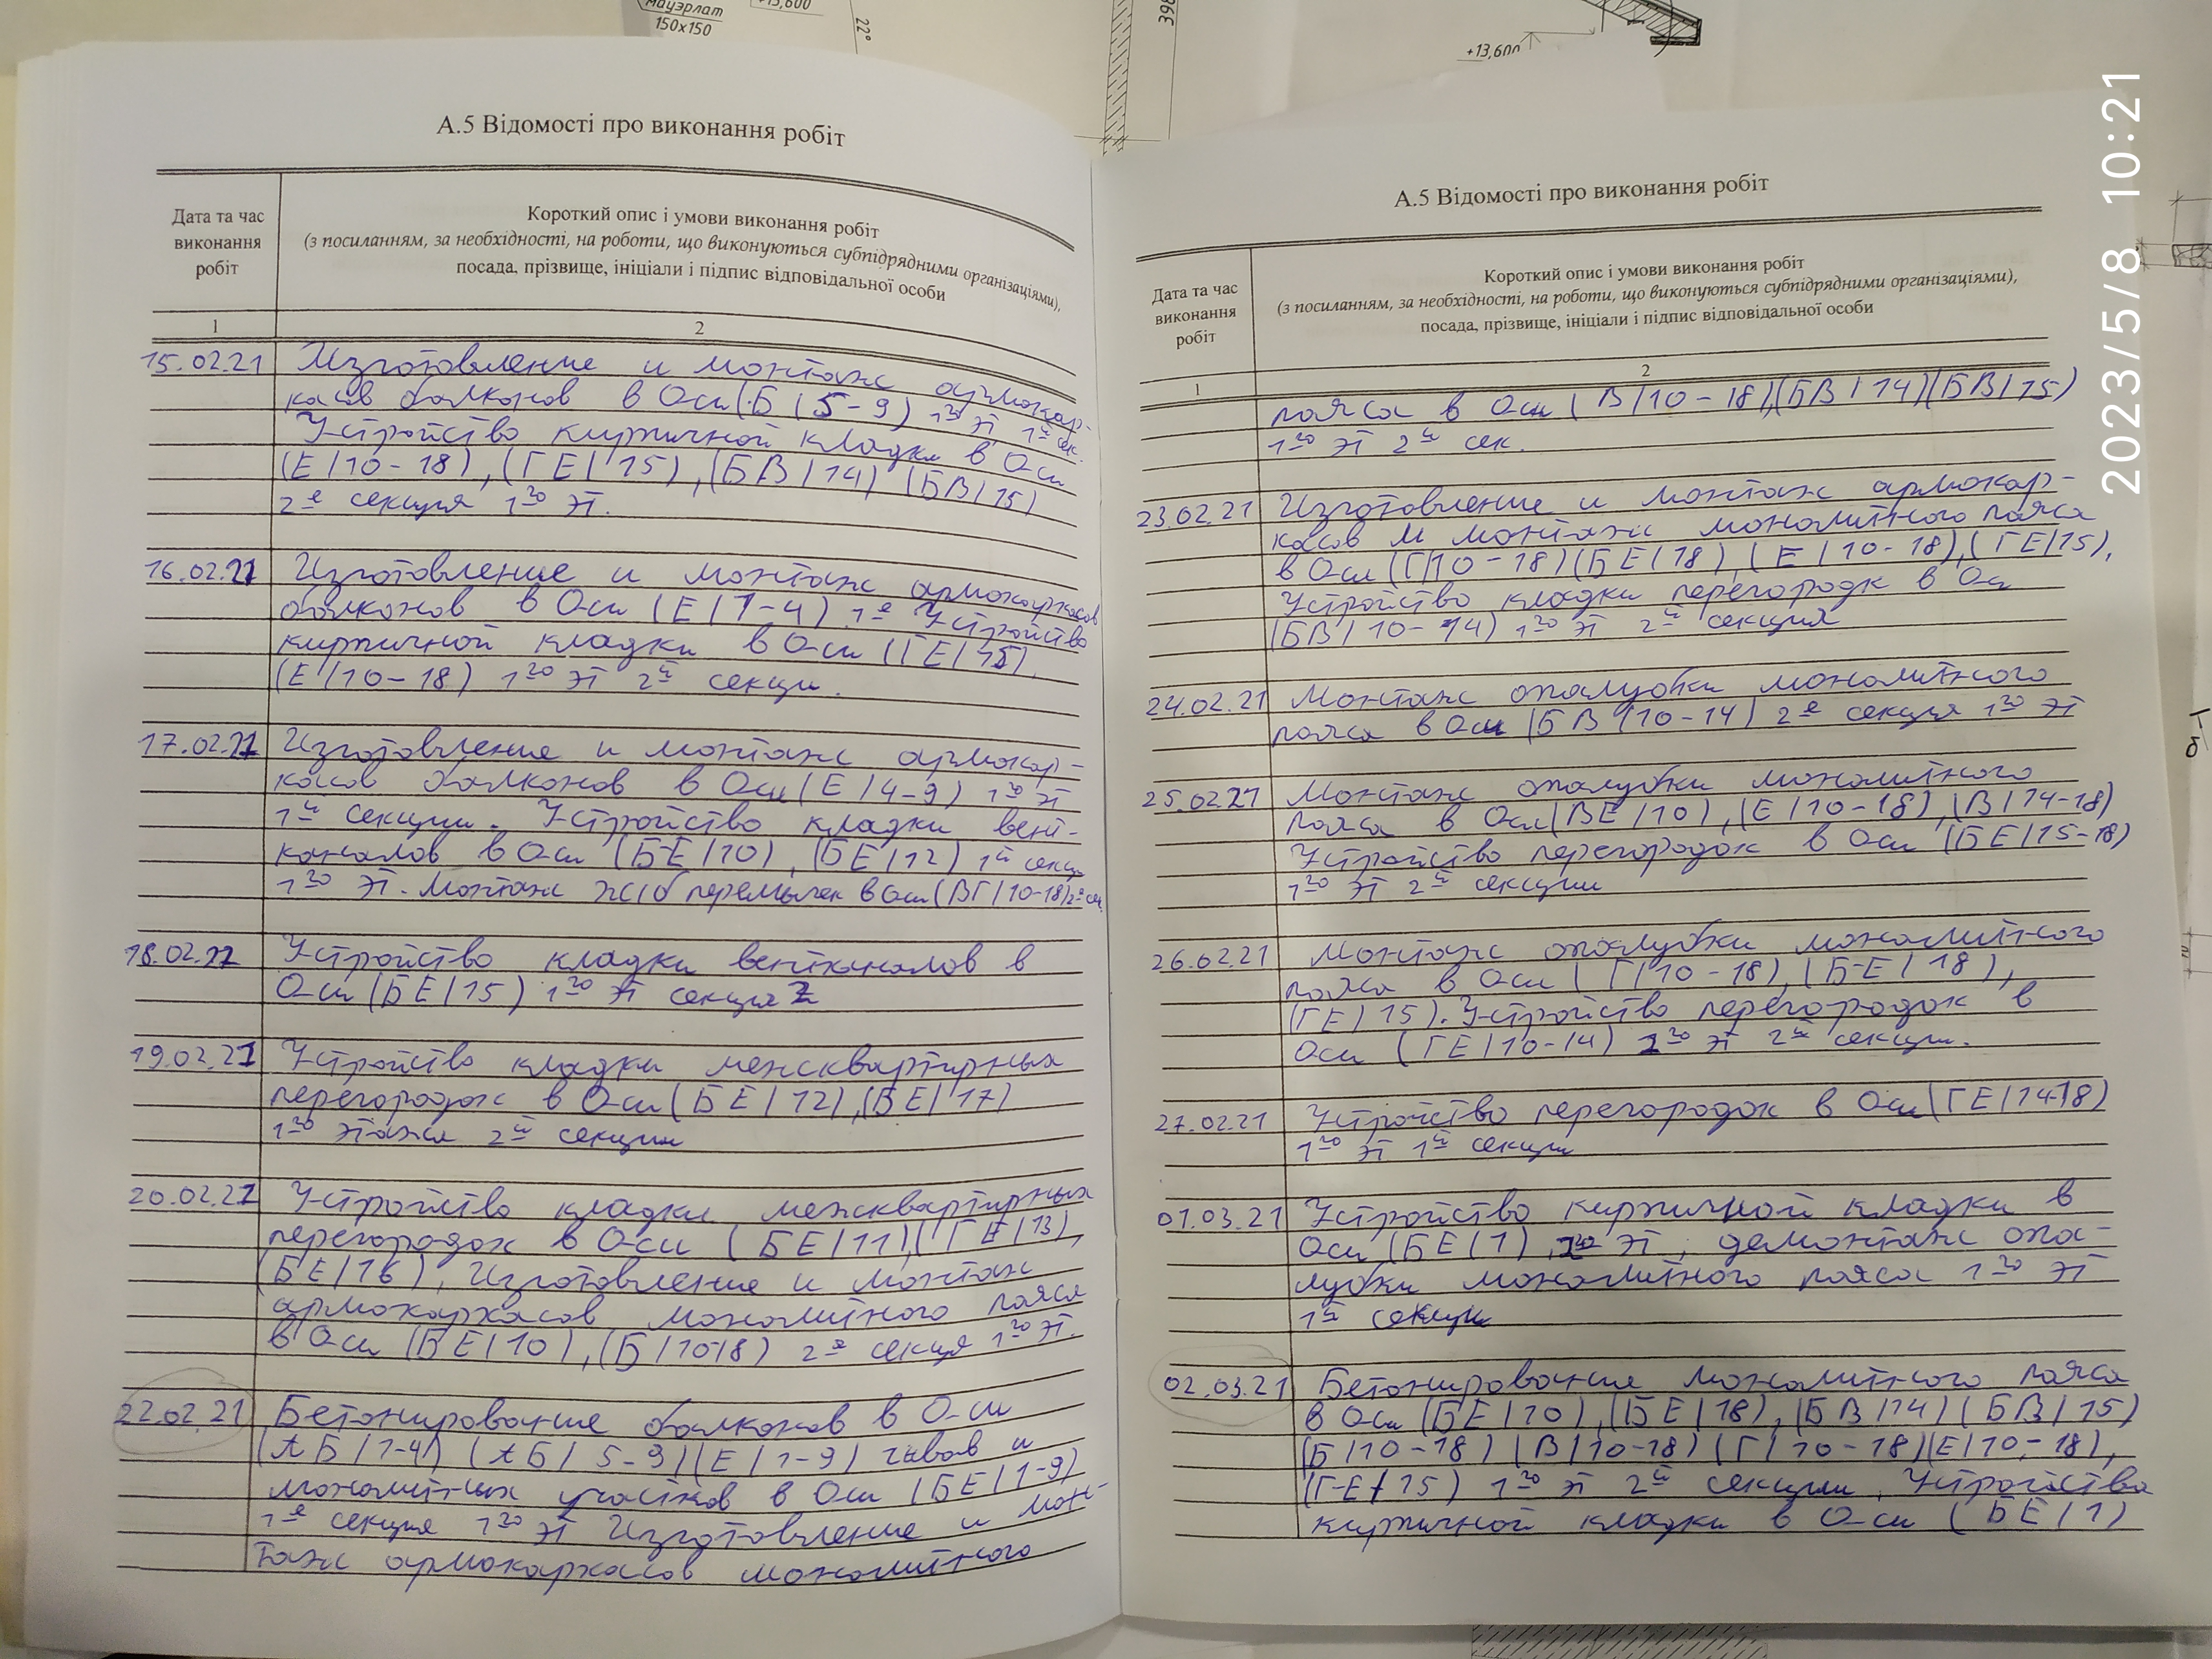 мауэрлат
150х150
+13,600
22°
398
+13,600
2023/5/8 10:21
А.5 Відомості про виконання робіт
Дата та час
виконання
робіт
Короткий опис і умови виконання робіт
(з посиланням, за необхідності, на роботи, що виконуються субпідрядними організаціями),
посада, прізвище, ініціали і підпис відповідальної особи
1 2
15.02.21 Изготовление и монтаж армокар-
касов балконов в Оси (Б/5-9) 1го эт 1й сек.
Устройство кирпичной кладки в Оси
(Е/10-18), (ГЕ/15), (БВ/14) (БВ/15)
2е секция 1го эт.
16.02.21 Изготовление и монтаж армокаркасов
балконов в Оси (Е/1-4) 1е Устройство
кирпичной кладки в Оси (ГЕ/15).
(Е/10-18) 1го эт 2й секци.
17.02.21 Изготовление и монтаж армокар-
касов балконов в Оси (Е/4-9) 1го эт
1й секции. Устройство кладки вент-
каналов в Оси (БЕ/10), (БЕ/12) 1й секц
1го эт. Монтаж ж/б перемычек в Оси (ВГ/10-18) 2е сек.
18.02.21 Устройство кладки вентканалов в
Оси (БЕ/15) 1го эт секция 2
19.02.21 Устройство кладки межсквартирных
перегородок в Оси (БЕ/12), (ВЕ/17)
1го этажа 2й секции
20.02.21 Устройство кладки межсквартирных
перегородок в Оси (БЕ/11), (ГЕ/13),
(БЕ/16), Изготовление и монтаж
армокаркасов монолитного пояса
в Оси (БЕ/10), (Б/1018) 2е секця 1го эт.
22.02.21 Бетонирование балконов в Оси
(АБ/1-4) (АБ/5-9) (Е/1-9) и
монолитных участков в Оси (БЕ/1-9)
1е секция 1го эт Изготовление и мон-
таж армокаркасов монолитного
А.5 Відомості про виконання робіт
Дата та час
виконання
робіт
Короткий опис і умови виконання робіт
(з посиланням, за необхідності, на роботи, що виконуються субпідрядними організаціями),
посада, прізвище, ініціали і підпис відповідальної особи
1 2
пояса в Оси (В/10-18), (БВ/14) (БВ/15)
1го эт 2й сек.
23.02.21 Изготовление и монтаж армокар-
касов и монтаж монолитного пояса
в Оси (Г/10-18) (БЕ/18), (Е/10-18), (ГЕ/15),
Устройство кладки перегородк в Оси
(БВ/10-14) 1го эт 2й секция
24.02.21 Монтаж опалубки монолитного
пояса в Оси (БВ/10-14) 2е секция 1го эт
25.02.21 Монтаж опалубки монолитного
пояса в Оси (ВЕ/10), (Е/10-18), (В/14-18)
Устройство перегородок в Оси (БЕ/15-18)
1го эт 2й секции
26.02.21 Монтаж опалубки монолитного
пояса в Оси (Г/10-18), (Б-Е/18),
(ГЕ/15). Устройство перегородок в
Оси (ГЕ/10-14) 1го эт 2й секции.
27.02.21 Устройство перегородок в Оси (ГЕ/14-18)
1го эт 1й секции
01.03.21 Устройство кирпичной кладки в
Оси (БЕ/1) 2го эт, демонтаж опа-
лубки монолитного пояса 1го эт
1й секции
02.03.21 Бетонирование монолитного пояса
в Оси (БЕ/10), (БЕ/18), (БВ/14) (БВ/15)
(Б/10-18) (В/10-18) (Г/10-18) (Е/10-18),
(Г-Е/15) 1го эт 2й секции, Устройство
кирпичной кладки в Оси (БЕ/1)